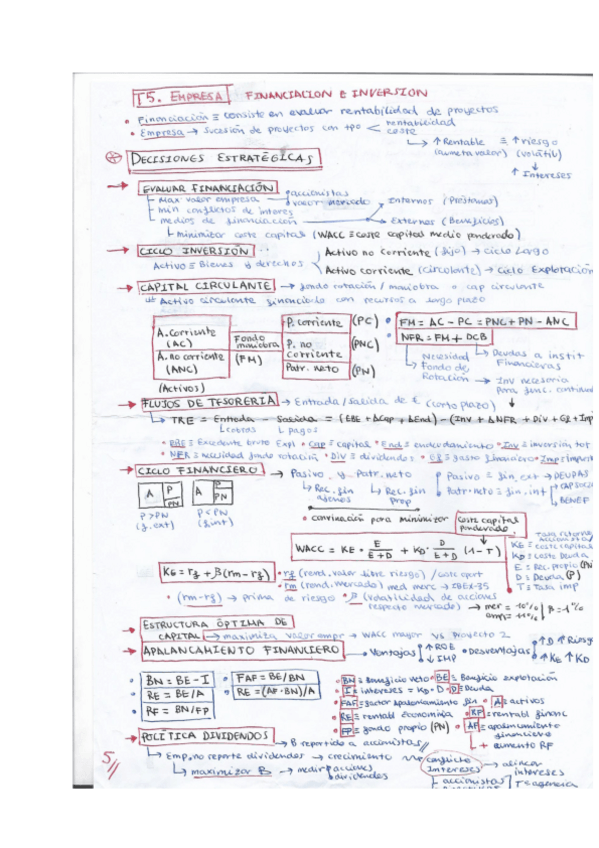 T5. EMPRESA FINANCIACION E INVERSION
• Financiación ≡ consiste en evaluar rentabilidad de proyectos
• Empresa → Sucesión de proyectos con tpo < rentabilidad
coste
↳ ↑ Rentable ≡ ↑ riesgo
(aumeta valor) (volátil)
↑ Intereses
DECISIONES ESTRATÉGICAS
→ EVALUAR FINANCIACIÓN
accionistas
Max valor empresa valor mercado Internos (Préstamos)
min conflictos de interes
medios de financiación → Externos (Beneficios)
↳ minimizar coste capital (WACC ≡ coste capital medio ponderado)
→ CICLO INVERSIÓN
Activo no Corriente (fijo) → ciclo Largo
Activo ≡ Bienes y derechos
Activo corriente (circolante) → ciclo Explotación
→ CAPITAL CIRCULANTE → fondo rotación / maniobra o cap circulante
Activo circulante financiado con recursos a largo plazo
A. Corriente (AC)
A. no corriente (ANC)
(Activos)
Fondo maniobra (FM)
P. corriente (PC)
P. no corriente (PNC)
Patr. neto (PN)
• FM = AC - PC = PNC + PN - ANC
NFR = FM + DCB
Necesidad Fondo de Rotación
Deudas a instit Financieras
→ Inv necesaria para func. continua
→ FLUJOS DE TESORERIA → Entrada/salida de € (corto plazo)
↳ TRE = Entrada - Salida = (EBE + ΔCap + ΔEnd) - (Inv + ΔNFR + Div + Gf + Imp
↳ cobros ↳ pagos
• EBE ≡ Excedente bruto Expl • Cap ≡ capital • End ≡ endeudamiento • Inv ≡ inversion
• NFR ≡ necesidad fondo rotación • Div ≡ dividendos • Gf ≡ gasto financiero • Imp
→ CICLO FINANCIERO → Pasivo y Patr. neto
↳ Rec. fin ajenos ↳ Rec. fin prop
Pasivo ≡ fin ext → DEUDAS
Patr. neto ≡ fin. int
BENEF
A P PN A P PN
P > PN P < PN
(f. ext) (f. int)
• convinación para minimizar coste capital ponderado
WACC = KE · E/(E+D) + KD · D/(E+D) (1 - T)
KE ≡ coste capital
KD ≡ coste Deuda
E = Rec. propio (PN)
D ≡ Deuda (P)
T ≡ Tasa imp
KE = rf + β(rm - rf)
• rf (rend. valor libre riesgo) / coste oport
• rm (rend. mercado) med merc → IBEX-35
• (rm-rf) → prima de riesgo • β (volatilidad de acciones
respecto mercado)
→ ESTRUCTURA ÓPTIMA DE
CAPITAL → maximiza valor empr → WACC mayor vs Proyecto 2
→ APALANCAMIENTO FINANCIERO → Ventajas ↑ ROE ↓ IMP • Desventajas ↑ D ↑ Riesgo
↑ KE ↑ KD
• BN = BE - I • FAF = BE/BN
• RE = BE/A • RE = (AF·BN)/A
• RF = BN/FP
• BN ≡ Beneficio neto • BE ≡ Beneficio explotación
• I ≡ intereses = KD · D • D ≡ Deuda
• FAF ≡ factor apalancamiento fin • A ≡ activos
• RE ≡ rentabl Economia • RF ≡ rentabl financ
• FP ≡ fondo propio (PN) • AF ≡ apalancamiento financiero
↳ + aumento RF
→ POLÍTICA DIVIDENDOS → B repartido a accionistas
↳ Emp. no reparte dividendos → crecimiento conflicto intereses → alinear intereses
↳ maximizar B → medir acciones
dividendos
accionistas
T agencia
5//